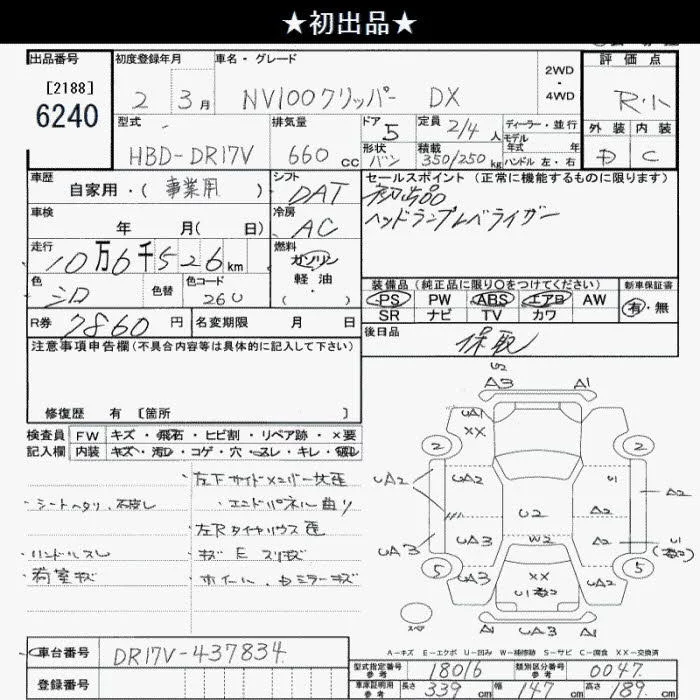 ★初出品★
出品番号
[2188]
6240
初度登録年月
2 3月
車名・グレード
NV100クリッパー DX
2WD
・
4WD
評価点
R・1
外装 内装
D C
型式
HBD-DR17V
排気量
660 cc
ドア
5
定員
2/4人
ディーラー・並行
モデル
年式 年
ハンドル 左・右
形状
バン
積載
350/250kg
車歴
自家用・(事業用)
シフト
DAT
セールスポイント(正常に機能するものに限ります)
初出品
ヘッドランプレベライザー
車検
年 月(日)
冷房
AC
走行
10万6千526km
燃料
ガソリン
軽油
(・)
色
シロ
色替
色コード
26U
装備品(純正品に限り○をつけてください)
PS PW ABS エアB AW
SR ナビ TV カワ
新車保証書
有・無
R券
7860円
名変期限 月 日
後日品
保取
注意事項申告欄(不具合内容等は具体的に記入して下さい)
修復歴 有 [箇所 ]
検査員
記入欄
FW キズ・飛石・ヒビ割・リペア跡・×要
内装 キズ・汚レ・コゲ・穴・スレ・キレ・
シートヘタリ
ハンドルスレ
荷室キズ
左下サイドメンバー
エンドパネル曲り
左Rタイヤハウス
キズ E スリキズ
ホイール、ミラーキズ
U2
A3 A1
UA1
XX
2 2
UA2 UA2 U1 A2
U2 A2
UA3 UA3 W2 A2 U1
5 UA3 XX UA2 5
U1
スペア
A1 UA3 UA3 A1
A-キズ E-エクボ U-凹み W-補修跡 S-サビ C-腐食 XX-交換済
車台番号
DR17V-437834
登録番号
型式指定番号
参考
18016
類別区分番号
参考
0047
車庫証明用
参考
長さ 339cm 幅 147cm 高さ 189cm